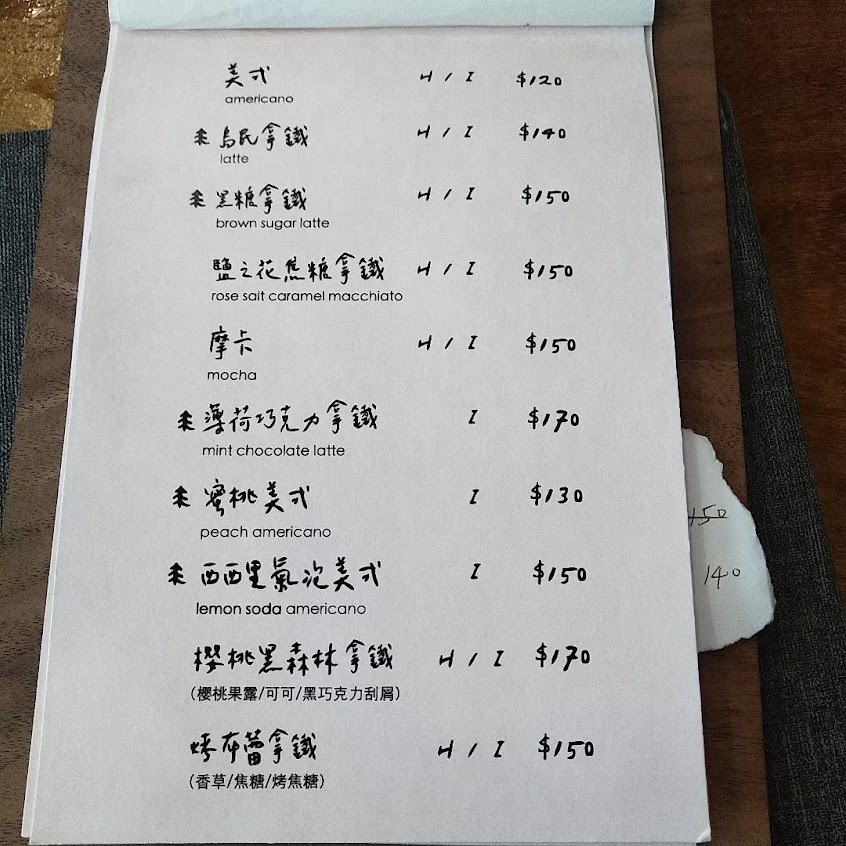 美式 H / I $120
americano
烏民拿鐵 H / I $140
latte
黑糖拿鐵 H / I $150
brown sugar latte
鹽之花焦糖拿鐵 H / I $150
rose salt caramel macchiato
摩卡 H / I $150
mocha
薄荷巧克力拿鐵 I $170
mint chocolate latte
蜜桃美式 I $130
peach americano
西西里氣泡美式 I $150
lemon soda americano
櫻桃黑森林拿鐵 H / I $170
(櫻桃果露/可可/黑巧克力刮屑)
烤布蕾拿鐵 H / I $150
(香草/焦糖/烤焦糖)
150
140